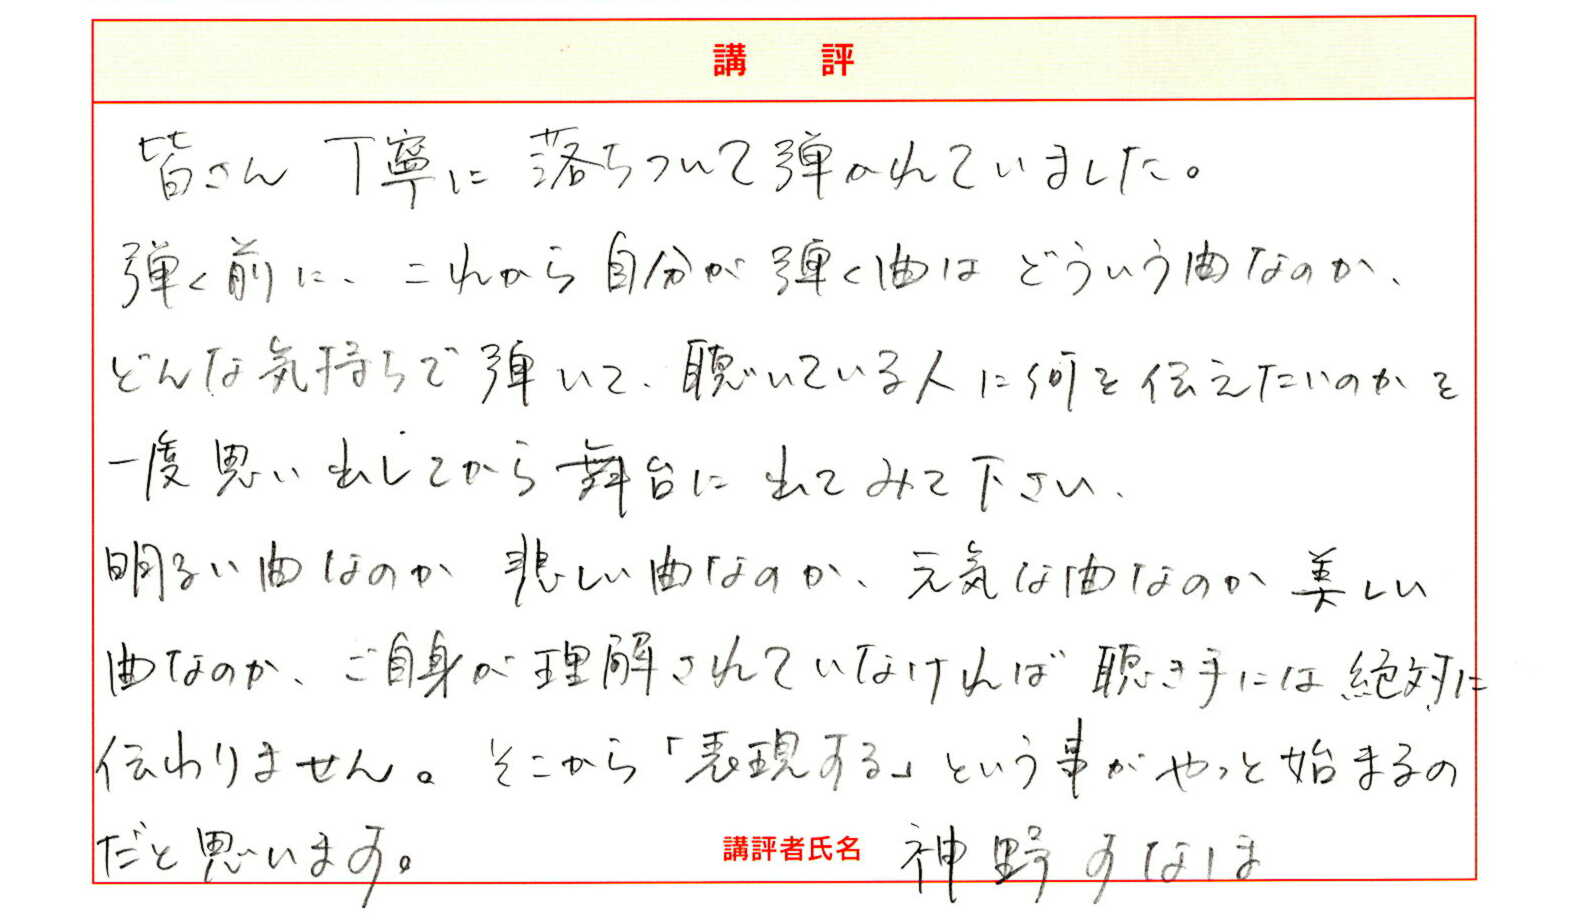 講 評
皆さん 丁寧に 落ちついて弾かれていました。
弾く前に、これから自分が弾く曲は どういう曲なのか、
どんな気持ちで弾いて、聴いている人に何を伝えたいのかを
一度思い出してから舞台に出てみて下さい、
明るい曲なのか 悲しい曲なのか、元気な曲なのか 美しい
曲なのか、ご自身が理解されていなければ 聴き手には絶対に
伝わりません。そこから「表現する」という事がやっと始まるの
だと思います。
講評者氏名 神野すなほ